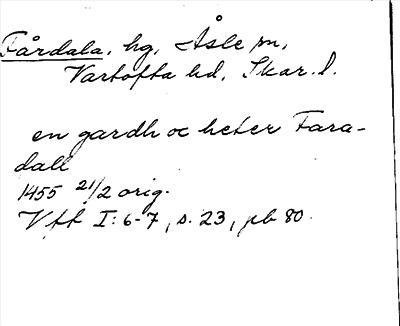 Fårdala, hg, Åsle sn,
Vartofta hd, Skar. l.
en gardh oc heter Fara-
dall
1455 21/2 orig.
Vtt I: 6-7, s. 23, pb 80.